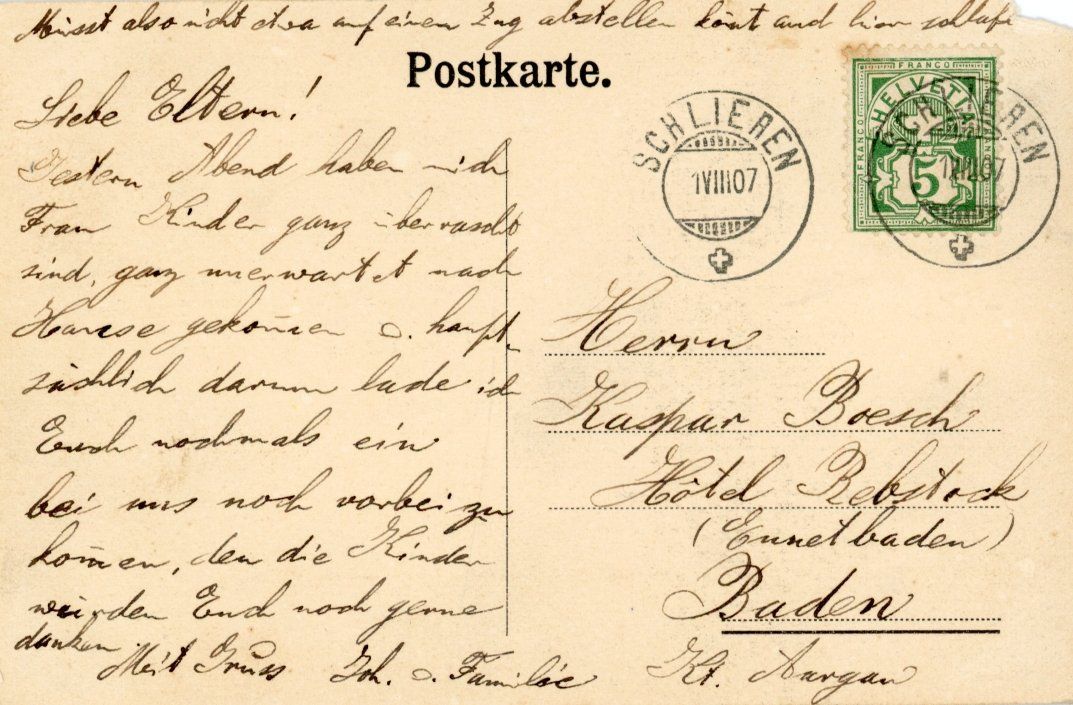 Müsst also nicht etwa auf einen Zug abstellen könt auch hier schlafe
Postkarte.
Liebe Eltern!
Gestern Abend haben mich
Frau Kinder ganz überrascht
sind, ganz unerwartet nach
Hause gekom̄en u. haupt-
sächlich darum lade ich
Euch nochmals ein
bei uns noch vorbei zu
kom̄en, den die Kinder
würden Euch noch gerne
danken
Mit Gruss Joh. u. Familie
SCHLIEREN
1VIII07
FRANCO
HELVETIA
FRANCO
FRANCO
5
SCHLIEREN
1VIII07
Herrn
Kaspar Boesch
Hôtel Rebstock
(Ennetbaden)
Baden
Kt. Aargau